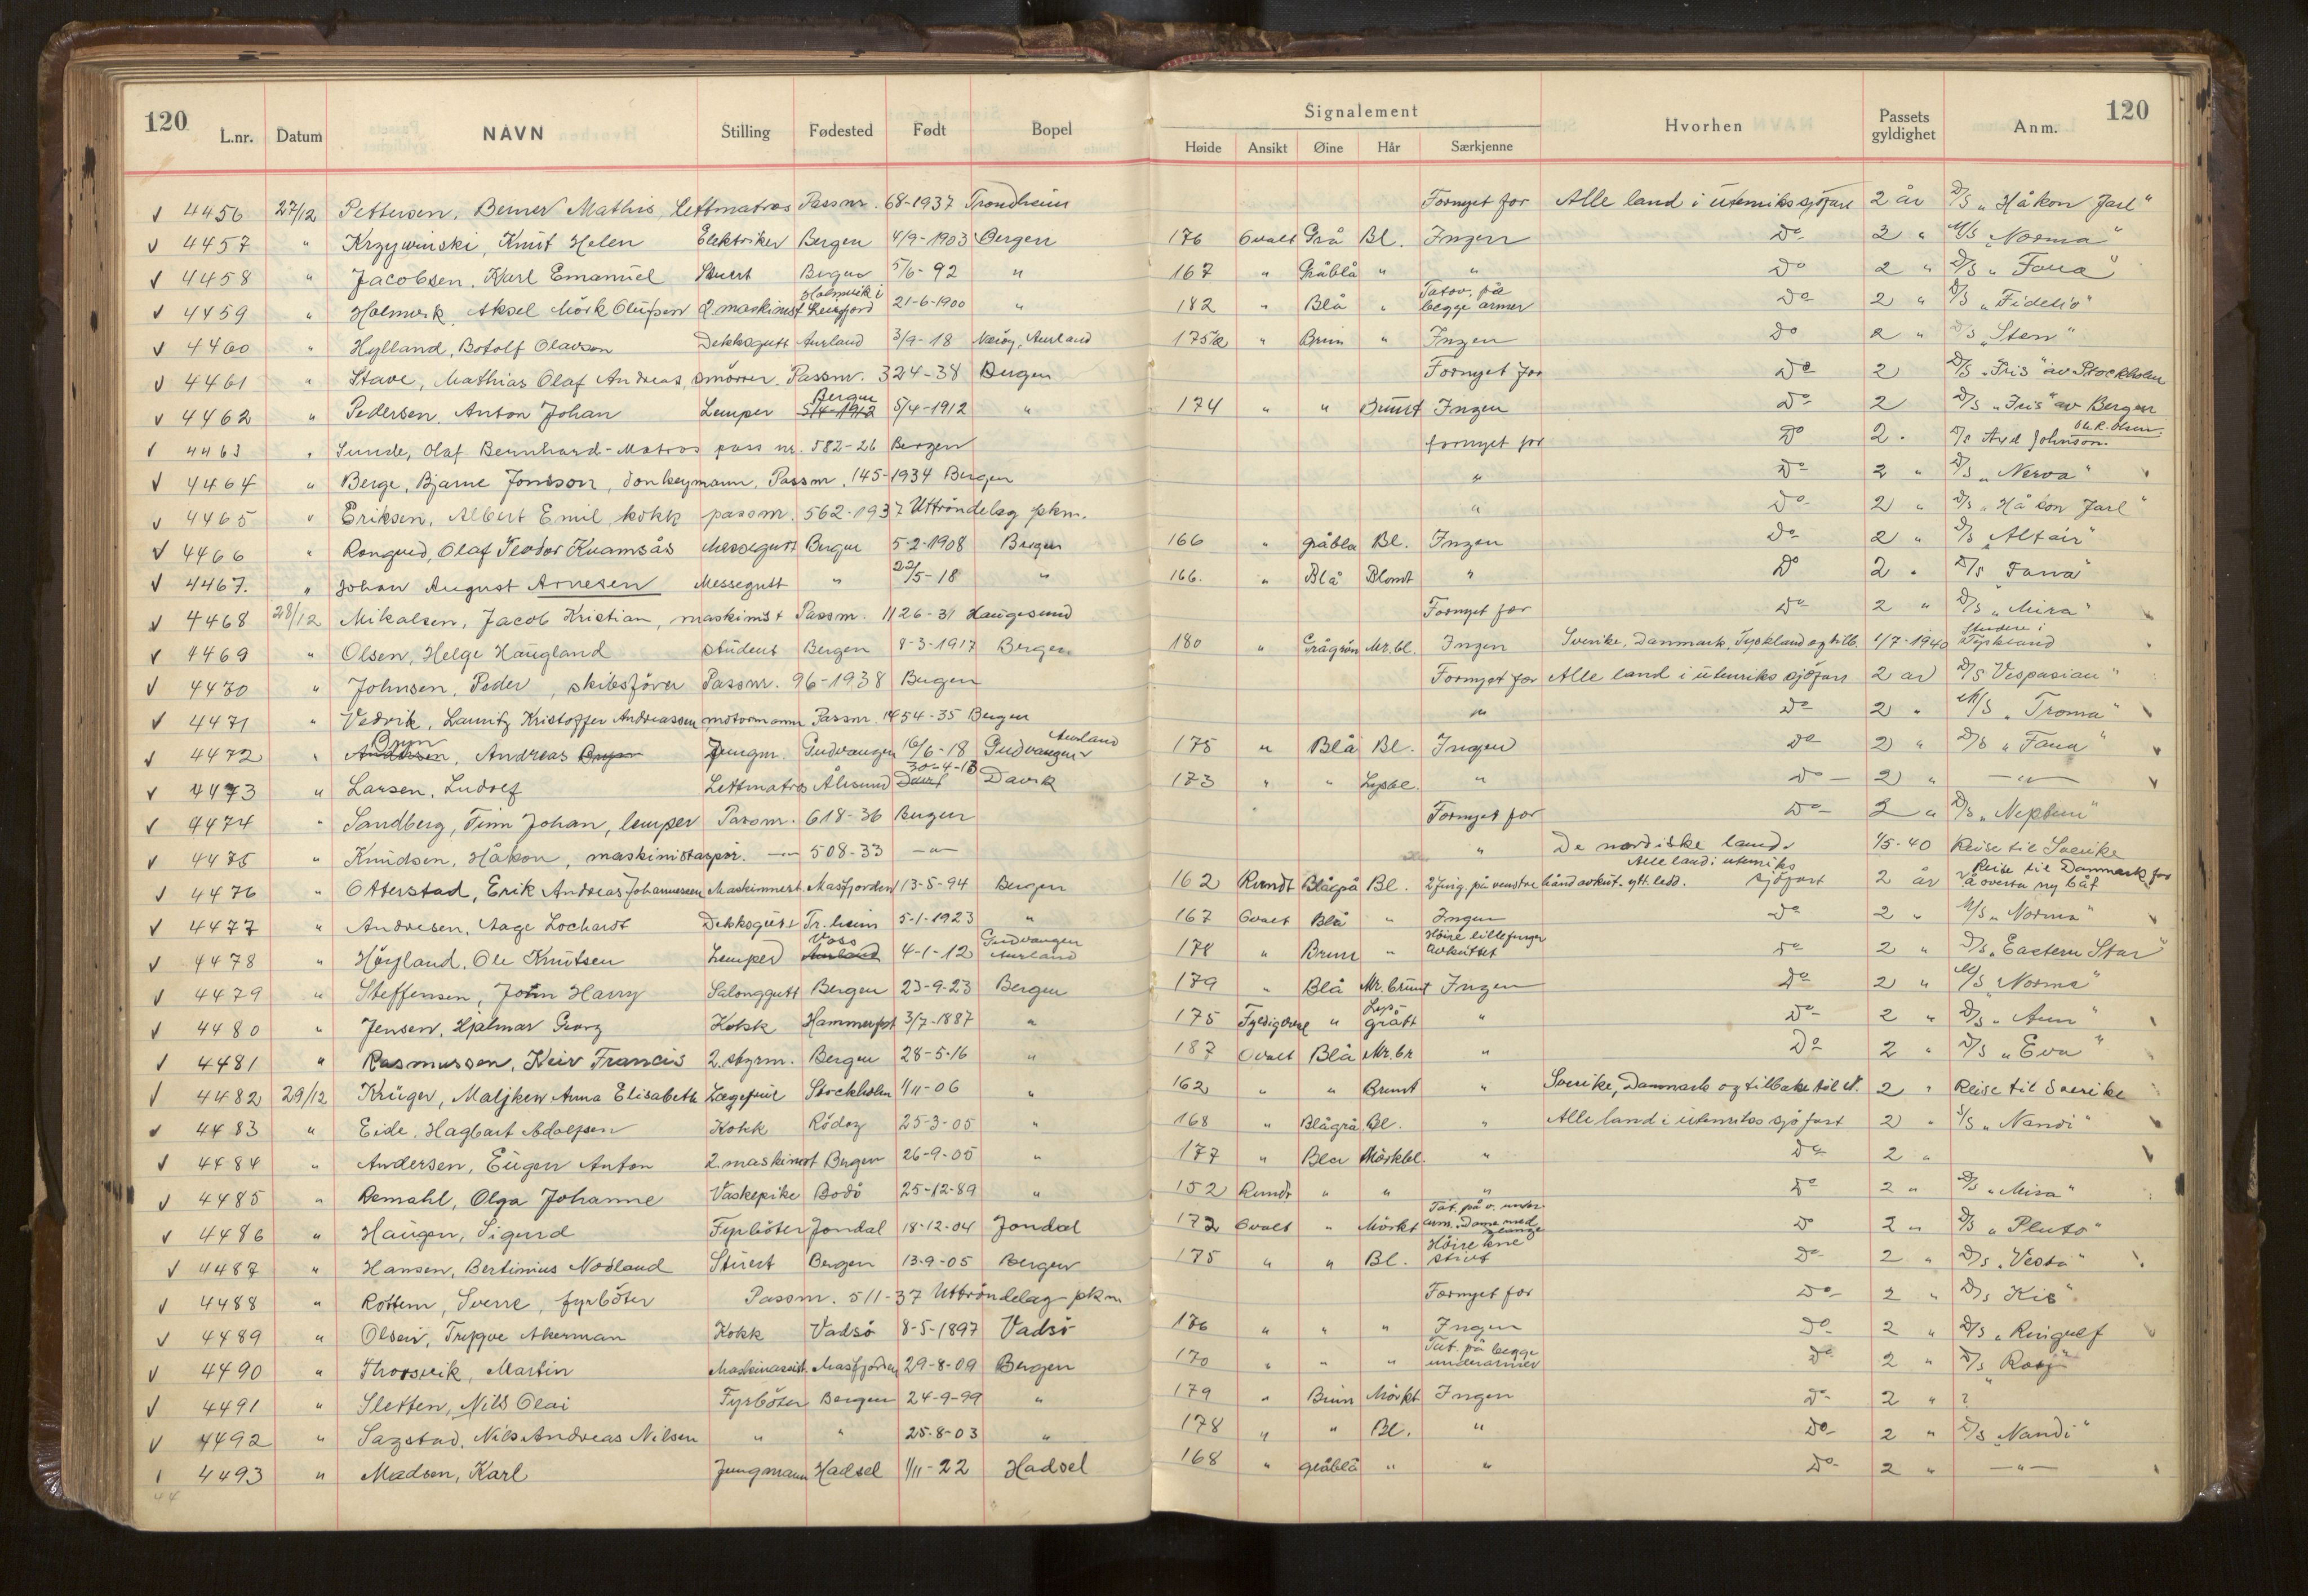 120 120
Signalement
L.nr. Datum NAVN Stilling Fødested Født Bopel Høide Ansikt Øine Hår Særkjenne Hvorhen Passets gyldighet Anm.
√ 4456 27/12 Pettersen, Berner Mathis, lettmatros Passnr. 68-1937 Trondheim Fornyet for Alle land i utenriks sjöfart 2 år D/S „Håkon Jarl"
√ 4457 " Krzywinski, Knut Helen Elektriker Bergen 4/9-1903 Bergen 176 Ovalt Grå Bl. Ingen Do 2 " M/S „Norma"
√ 4458 " Jacobsen, Karl Emanuel Stuert Bergen 5/6-92 " 167 " Gråblå " " Do 2 " D/S „Fana"
√ 4459 " Holmvik, Aksel Mörk Olufsen 2 maskinist Holmvik i 21-6-1900 " 182 " Blå " Tatov. på begge armer Do 2 " D/S „Fidelio"
√ 4460 " Hylland, Botolf Olavson Dekksgutt Aurland 3/9-18 Næröy, Aurland 175½ " Brun " Ingen Do 2 " D/S „Sten"
√ 4461 " Stave, Mathias Olaf Andreas, smörer. Passnr. 324-38 Bergen Fornyet for Do 2 D/S „Iris" av Stockholm
√ 4462 " Pedersen, Anton Johan Lemper Bergen 5/4-1912 5/4-1912 " 174 " " Brunt Ingen Do 2 D/S „Iris" av Bergen
√ 4463 " Sunde, Olaf Bernhard - Matros pass nr. 582-26 Bergen fornyet for Do 2 " D/S Axel Johnson. Ole R. Olsen.
√ 4464 " Berge, Bjarne Jonsson, donkeymann, Passnr. 145-1934 Bergen " Do 2 " D/S „Nerva"
√ 4465 " Eriksen, Albert Emil, kokk passnr. 562-1937 Uttröndelag pkm. " Do 2 " D/S „Håkon Jarl"
√ 4466 " Rongved, Olaf Teodor Kvamsås Messegutt Bergen 5-2-1908 Bergen 166 " gråblå Bl. Ingen Do 2 " D/S „Altair"
√ 4467. " Johan August Arnesen Messegutt " 22/5-18 " 166. " Blå Blondt " Do 2 " D/S Fana"
√ 4468 28/12 Mikalsen, Jacob Kristian, maskinist Passnr. 1126-31 Haugesund Fornyet for Do 2 " D/S „Mira"
√ 4469 " Olsen, Helge Haugland student Bergen 8-3-1917 Bergen 180 " Grågrön Mr. bl. Ingen Sverike, Danmark, Tyskland og tilb. 1/7-1940 Studere i Tyskland
√ 4470 " Johnsen, Peder, skibsförer Passnr. 96-1938 Bergen Fornyet for Alle land i utenriks sjöfart 2 år D/S Vespasian"
√ 4471 " Vedvik, Lauritz Kristoffer Andreassen motormann Passnr. 1454-35 Bergen " Do 2 " M/S „Troma"
√ 4472 " Bryn Andersen, Andreas Bryn Jungm. Gudvangen 16/6-18 Gudvangen Aurland 175 " Blå Bl. Ingen Do 2 " D/S „Fana"
√ 4473 " Larsen, Ludolf Lettmatros Ålesund 30-4-18 Davik 173 " " Lysbl. " Do 2 " —"—
√ 4474 " Sandberg, Finn Johan, lemper Passnr. 618-36 Bergen Fornyet for Do 2 " D/S „Neptun"
√ 4475 " Knudsen, Håkon, maskinistaspir. —"— 508-33 —"— " De nordiske land. 1/5-40 Reise til Sverike
√ 4476 " Otterstad, Erik Andreas Johannessen Maskinmest. Masfjorden 13-5-94 Bergen 162 Rundt Blågrå Bl. 2 fing. på venstre hånd avkut. ytt. ledd. Alle land i utenriks sjöfart 2 år Reise til Danmark for å overta ny båt
√ 4477 " Andresen, Aage Lochardt Dekksgutt Tr.heim 5-1-1923 " 167 Ovalt Blå " Ingen Do 2 " M/S „Norma"
√ 4478 " Höyland, Ole Knutsen Lemper Voss Aurland 4-1-12 Gudvangen Aurland 178 " Brun " Höire lillefinger avkuttet Do 2 " D/S „Eastern Star"
√ 4479 " Steffensen, John Harry Salonggutt Bergen 23-9-23 Bergen 179 " Blå Mr. brunt Ingen Do 2 " M/S „Norma"
√ 4480 " Jensen, Hjalmar Georg Kokk Hammerfest 3/7-1887 " 175 Fyldig oval " Lys-grått " Do 2 " D/S „Ann"
√ 4481 " Rasmussen, Keir Francis 2. styrm. Bergen 28-5-16 " 187 Ovalt Blå Mr. br " Do 2 " D/S „Eva"
√ 4482 29/12 Krüger, Maljken Anna Elisabeth Lægefrue Stockholm 1/11-06 " 162 " " Brunt " Sverike, Danmark og tilbake til N. 2 " Reise til Sverike
√ 4483 " Eide, Hagbart Adolfsen Kokk Rödöy 25-3-05 " 168 " Blågrå Bl. " Alle land i utenriks sjöfart 2 " S/S „Nandi"
√ 4484 " Andersen, Eugen Anton 2. maskinist Bergen 26-9-05 " 177 " Blå Mörkbl. " Do 2 "
√ 4485 " Remahl, Olga Johanne Vaskepike Bodö 25-12-89 " 152 Rundt " " " Do 2 " D/S „Mira"
√ 4486 " Haugen, Sigurd Fyrböter Jondal 18-12-04 Jondal 172 Ovalt " Mörkt Tat. på v. under arm. Dame med slange Do 2 " D/S „Pluto"
√ 4487 " Hansen, Bertinius Nodland Stuert Bergen 13-9-05 Bergen 175 " " Bl. Höire kne stivt Do 2 " D/S „Vesta"
√ 4488 " Rottem, Sverre, fyrböter Passnr. 511-37 Uttröndelag pkm Fornyet for Do 2 " D/S Kis"
√ 4489 " Olsen, Trygve Akerman Kokk Vadsö 8-5-1897 Vadsö 176 " " " Ingen Do 2 " D/S „Ringulf
√ 4490 " Thorsvik, Martin Maskinassist. Masfjorden 29-8-09 Bergen 170 " " " Tat. på begge underarmer Do 2 " D/S
√ 4491 " Sletten, Nils Olai Fyrböter Bergen 24-9-99 " 179 " Brun Mörkt Ingen Do 2 " ?
√ 4492 " Sagstad, Nils Andreas Nilsen " " 25-8-03 " 178 " " Bl. " Do 2 " D/S „Nandi"
4493 " Madsen, Karl Jungmann Hadsel 1/11-22 Hadsel 168 " gråblå " " Do 2 " —"—
44